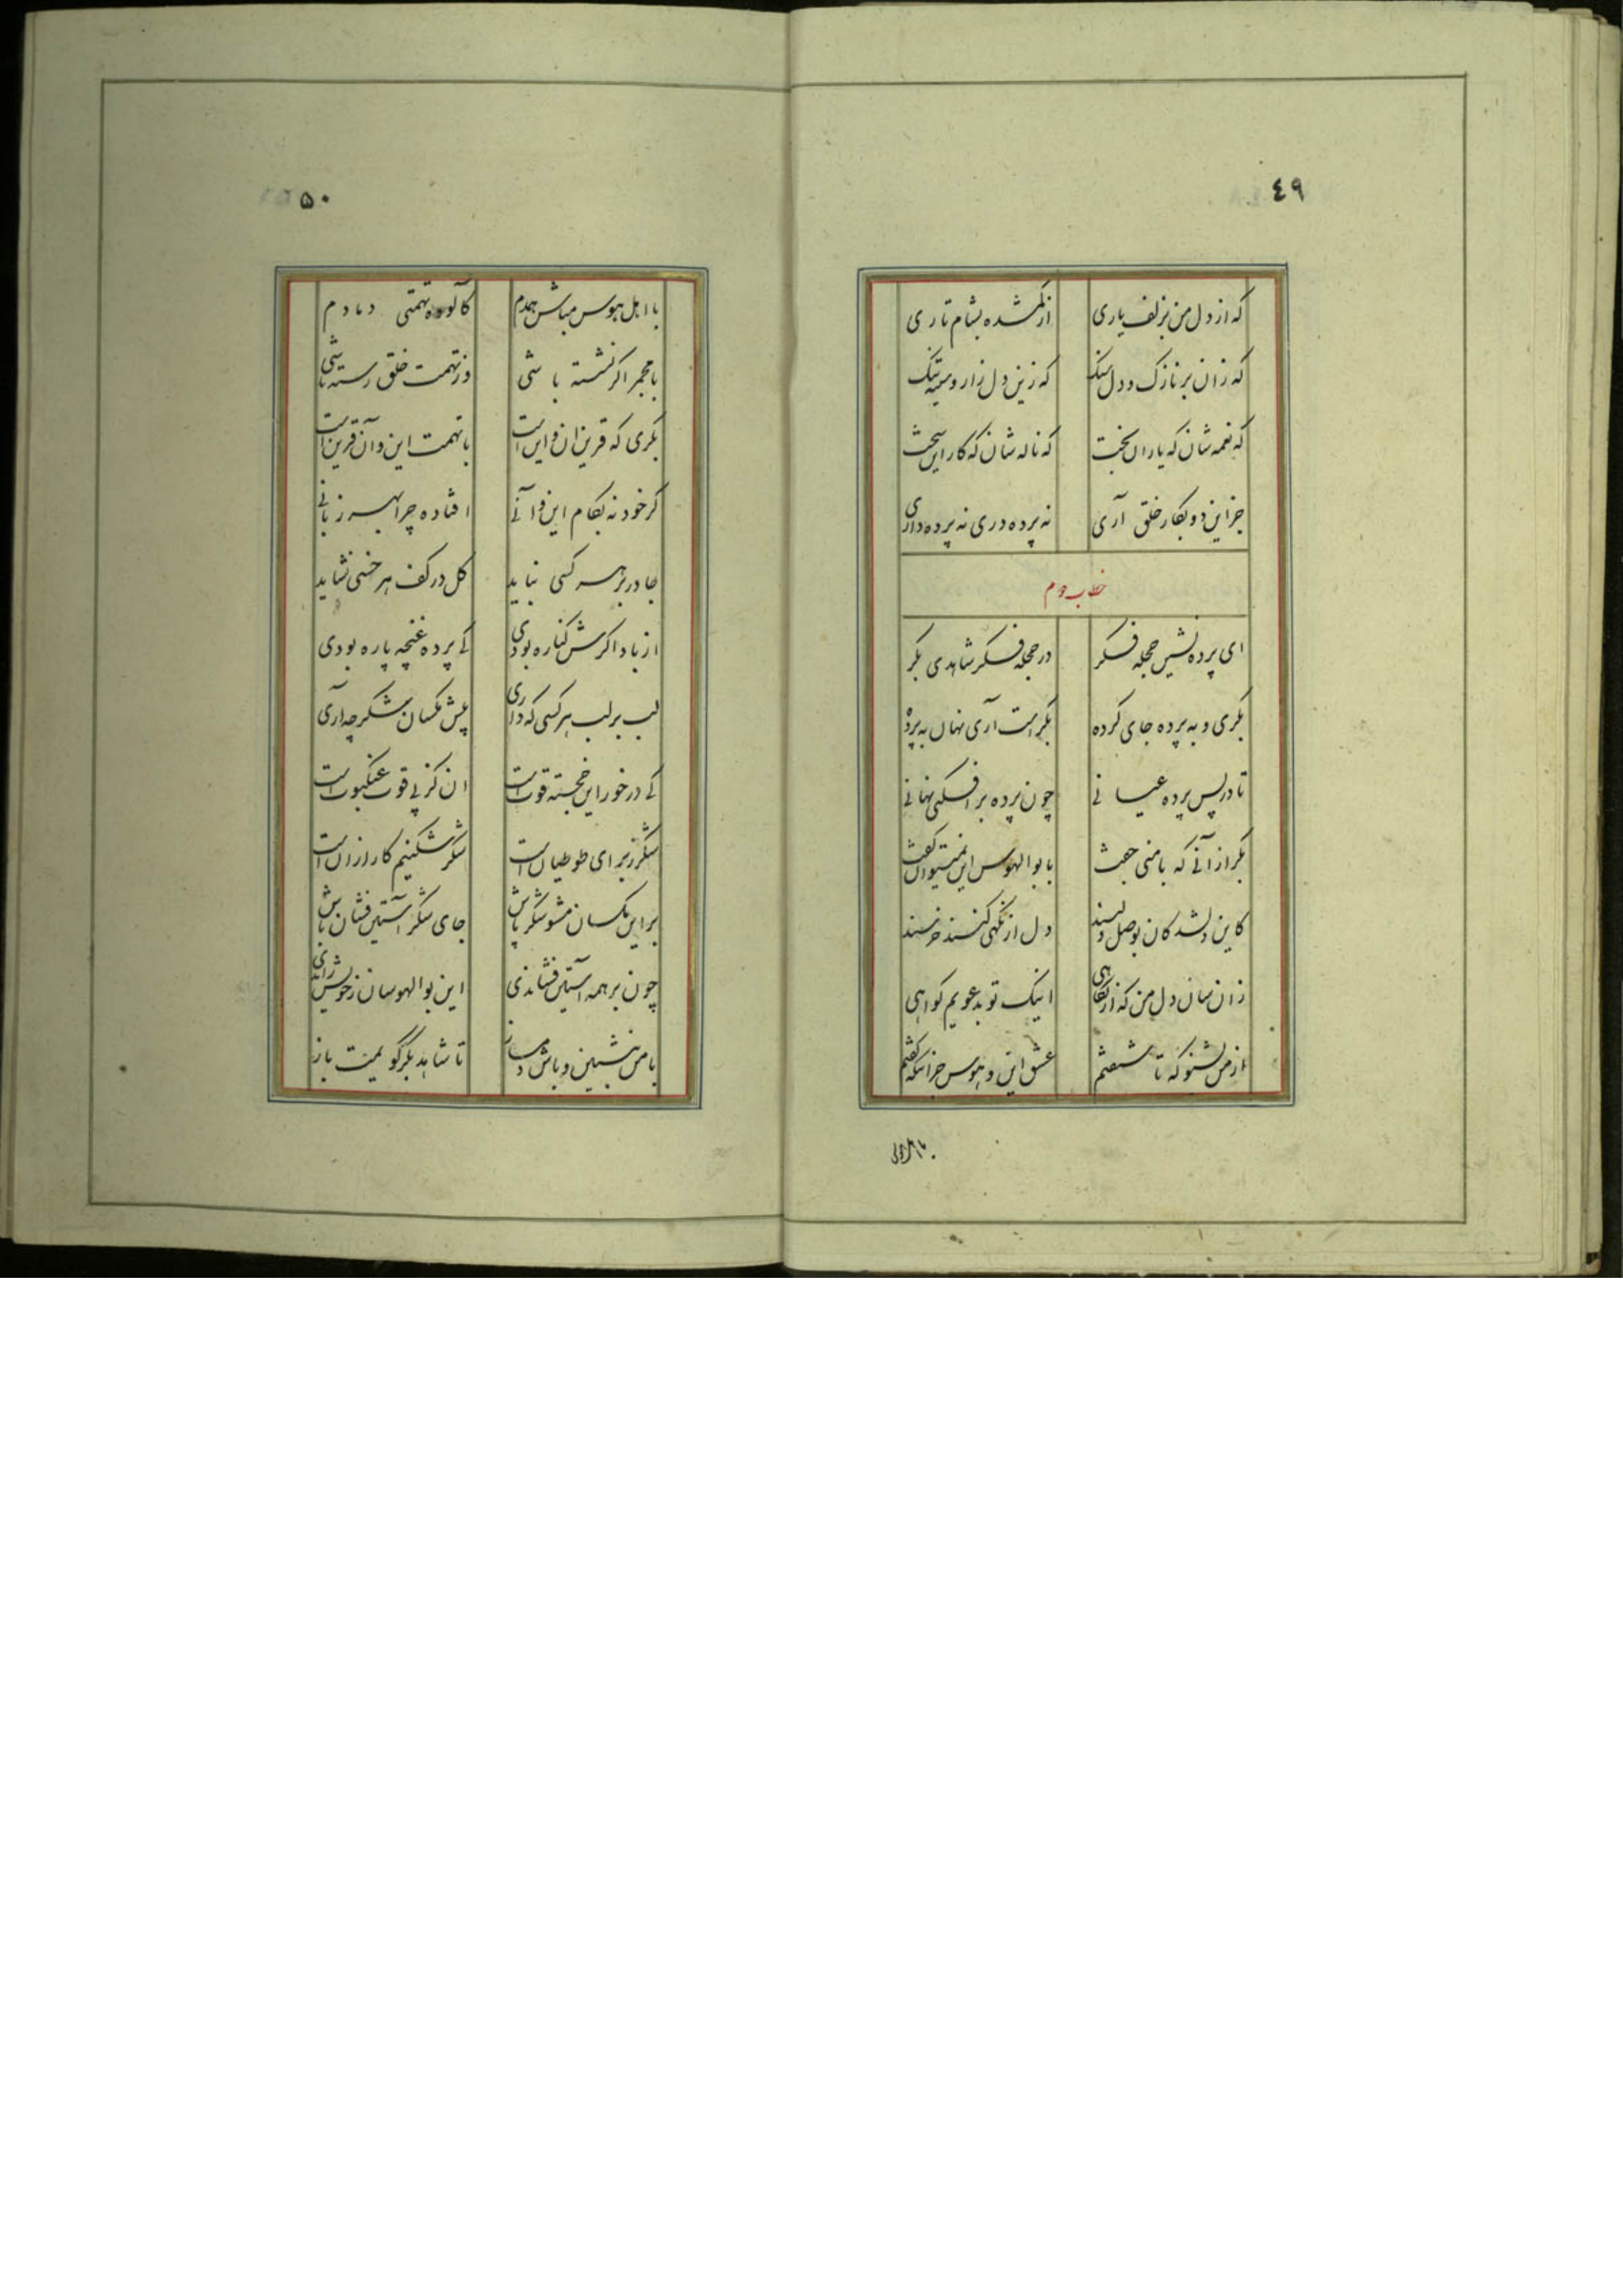 ٤٩
که از دل من بزلف یاری از گمشده بشام تاری
که زان بر نازک و دل سنگ که زین دل زار و سینه تنگ
که نغمه شان که یاران بخت که ناله شان که کار این سخت
جز این دو بکار خلق آری نه پرده دری نه پرده داری
خطاب دوم
ای پرده نشین حجله فکر در حجله فکر شاهدی بکر
بکری و به پرده جای کرده بکر است آری نهان به پرده
تا در پس پرده عیانی چون پرده بر افکنی نهانی
بکر از آنی که با منی جفت با بوالهوس این نمیتوان گفت
کاین دلشدگان بوصل دلبند دل از نگهی کنند خرسند
زان سان دل من که از نگاهی اینک تو بدعویم کواهی
از من بشنو که تا شنفتم عشق این و هوس جز اینکه گفتم
با اهل هوس
۵۰
با اهل هوس مباش همدم کالوده تهمتی دمادم
با مجمر اکر نشسته باشی وز تهمت خلق رسته باشی
بکری که قرین ان و این است با تهمت این و آن قرین است
کر خود نه بکام این و آنی افتاده چرا بهر زبانی
جا در بر هر کسی نباید کل در کف هر خسی نشاید
از باد اکرش کناره بودی کی پرده غنچه پاره بودی
لب بر لب هر کسی که داری پیش مکسان شکر چه آری
کی در خور این خجسته قوت است ان کز پی قوت عنکبوت است
شکر ز برای طوطیان است شکر شکنیم کار از ان است
بر این مکسان مشو شکر پاش جای شکر آستین فشان باش
چون بر همه آستین فشاندی این بوالهوسان ز خویش راندی
با من بنشین و باش دمساز تا شاهد بکر گویمت باز